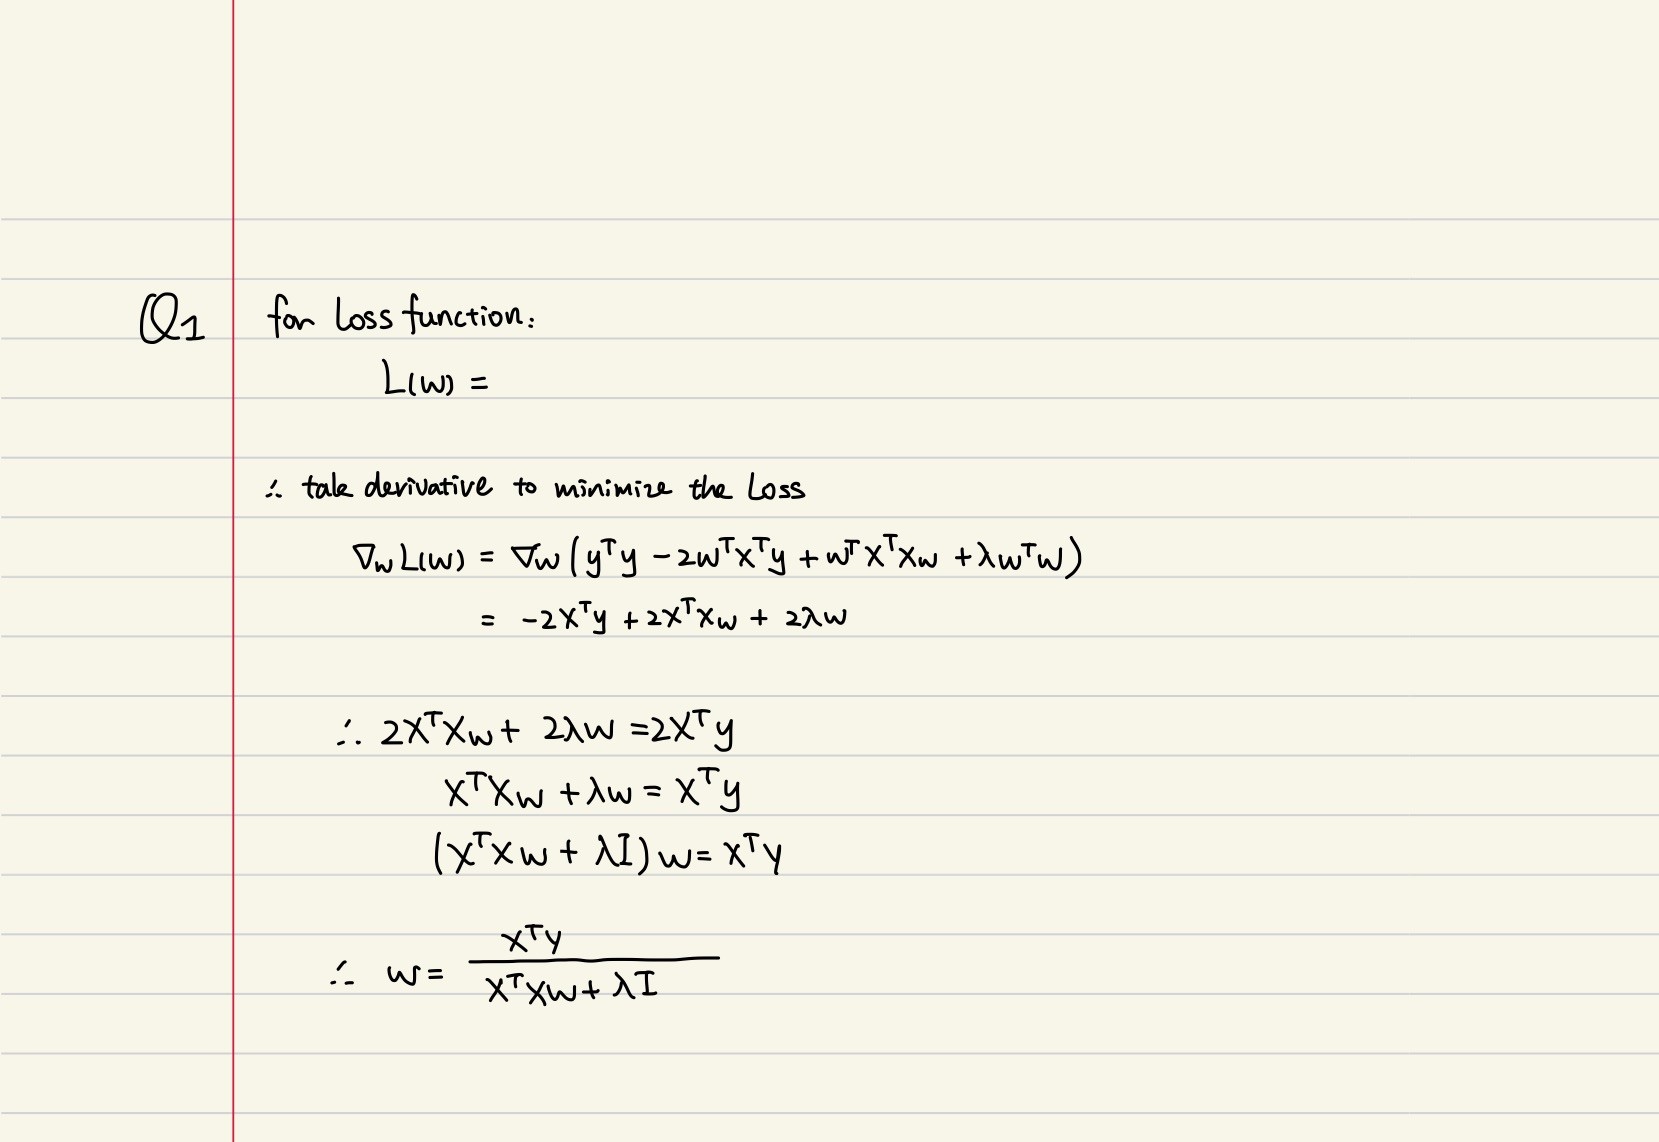 Q1 for Loss function:
L(w) =
∴ take derivative to minimize the Loss
∇w L(w) = ∇w (yᵀy − 2wᵀxᵀy + wᵀXᵀXw + λwᵀw)
= −2Xᵀy + 2XᵀXw + 2λw
∴ 2XᵀXw + 2λw = 2Xᵀy
XᵀXw + λw = Xᵀy
(XᵀXw + λI) w = Xᵀy
∴ w = Xᵀy / XᵀXw + λI